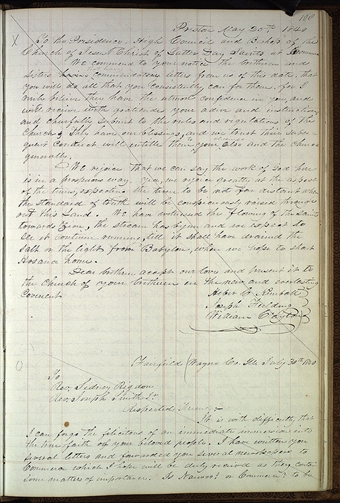 100
Preston May 30th 1840
To the Presidence, High Council and Bishop of the
Church of Jesus Christ of Latter Day Saints
We commend to your notice the brethren and
sisters commendatory letters from us of this date, that
you will do all that you consistently can for them, for I
believe they have the utmost confidence in you and
will receive your advice and instruction
and cheerfully submit to the rules and regulations of the
Church. They have our blessings, and we trust their
conduct will entitle them to yours also and the church
generally.
We rejoice that we can say the work of God here
is in a prosperous way. we rejoice at the aspect
of the times, expecting the time to be not far distant when
the standard of truth will be conspicuously raised through
out this land. We have witnessed the flowing of the Saints
towards Zion, the stream has begun and we expect to
see it continue running till it shall have drained the
salt or the light from Babylon, when we hope to shout
hosanna home.
Dear brethren accept our love and present it to
the Church of your brethren in the new and everlasting
Covenant.
Heber C. Kimball
Joseph Fielding
William Clayton
Fairfield Wayne Co. Ills July 30th 1840
To
Rev. Sidney Rigdon
Rev. Joseph Smith Jr
Respected Friends
It is with difficulty that
I can forgo the felicitous of an immediate immersion into
the true faith of your beloved people. I have written you
several letters and forwarded you several newspapers to
Commerce which I hope will be duly received as they contain
some matters of importance. Is Nauvoo or Commerce to be